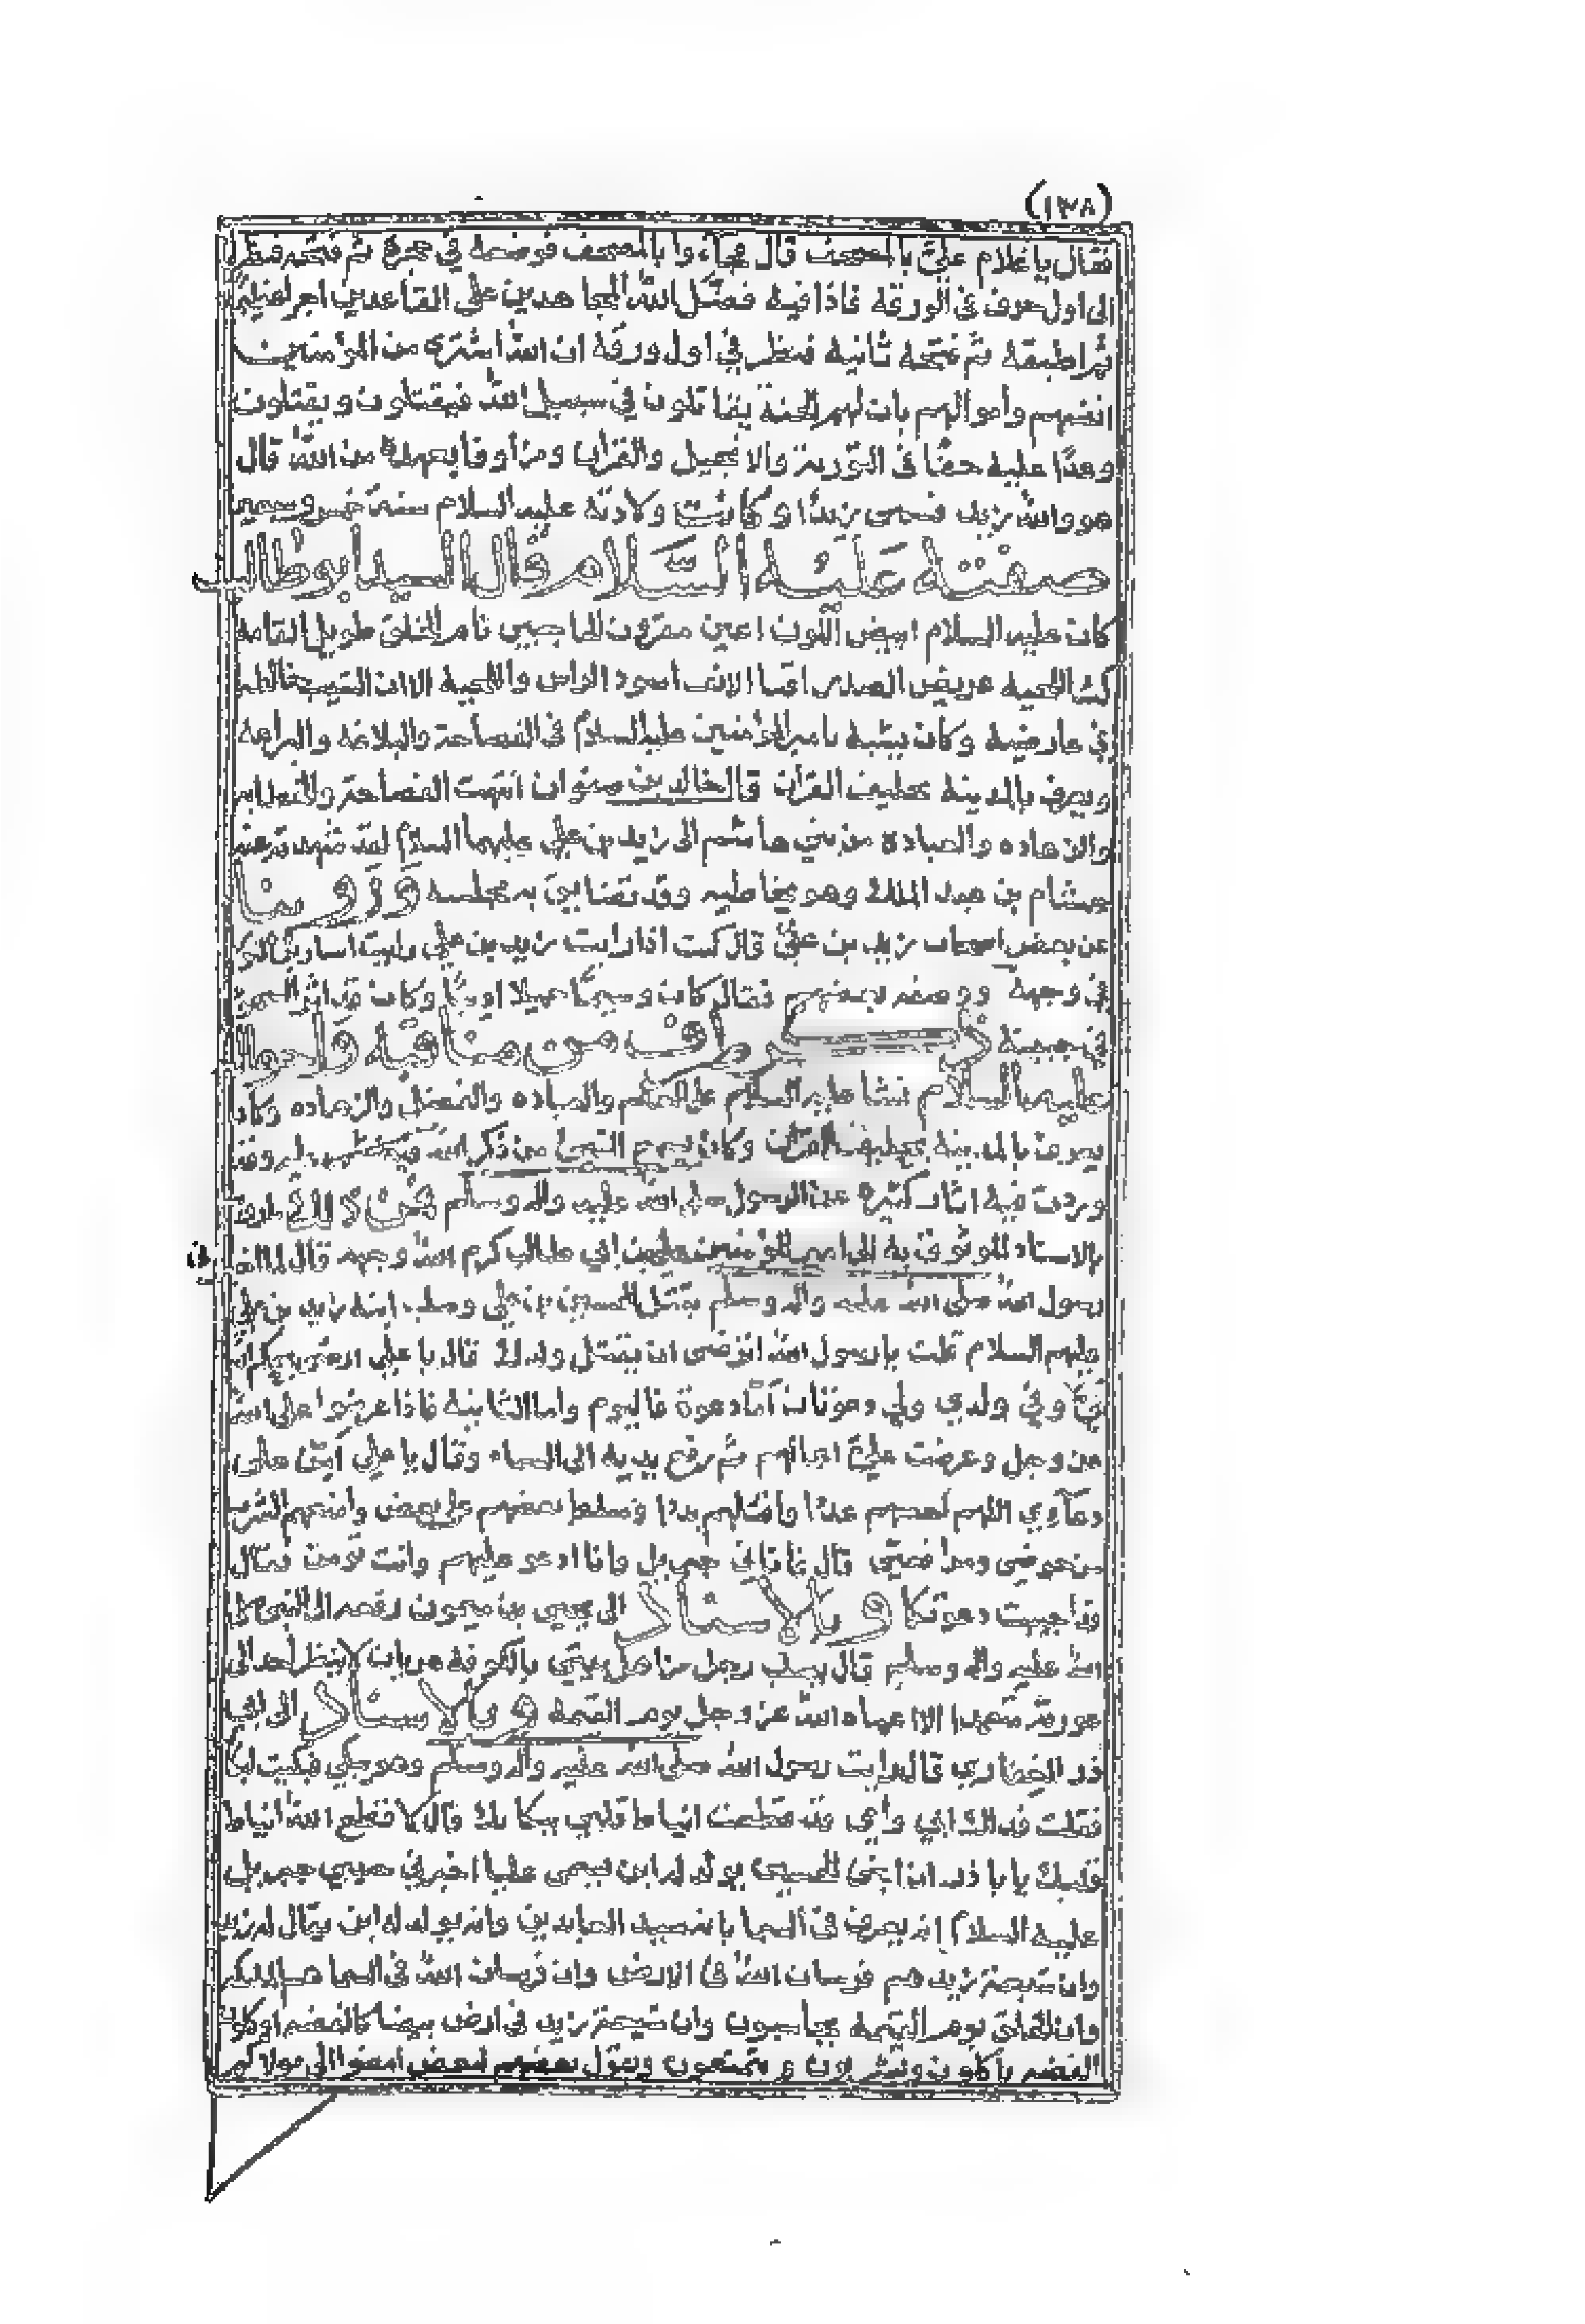 (١٣٨)
فقال يا غلام عليَّ بالمصحف قال فجاءوا بالمصحف فوضعه في حجره ثم فتحه فنظر
الى اول حرف في الورقة فاذا فيه فضّل الله المجاهدين على القاعدين اجرا عظيما
ثم اطبقه ثم فتحه ثانية فنظر في اول ورقة ان الله اشترى من المؤمنين
انفسهم وأموالهم بان لهم الجنة يقاتلون في سبيل الله فيقتلون ويقتلون
وعدًا عليه حقًا فى التورية والانجيل والقران ومن أوفا بعهده من الله قال
هو والله زيد فسمى زيدًا وكانت ولادته عليه السلام سنة خمس وسبعين
صفته عليه السلام قال السيد ابو طالب
كان عليه السلام ابيض اللون اعين مقرون الحاجبين تام الخلق طويل القامة
كث اللحية عريض الصدر اقنا الانف اسود الراس واللحية الا ان الشيب خالط
في عارضيه وكان يشبه بامير المؤمنين عليه السلام في الفصاحة والبلاغة والبراعة
ويعرف بالمدينة بحليف القران قال خالد بن صفوان انتهت الفصاحة والخطابة
والزهاده والعباده من بني هاشم الى زيد بن علي عليهما السلام لقد شهدته عند
هشام بن عبد الملك وهو يخاطبه وقد تضايق به مجلسه وروينا
عن بعض اصحاب زيد بن عليّ قال كنت اذا رايت زيد بن علي رايت اسارير النور
في وجهه ووصفه بعضهم فقال كان وسيمًا جميلا ابيضا وكان قد اثر السجود
في جبهته ذكر طرف من مناقبه واحواله
عليه السلام نشا عليه السلام على العلم والعباده والفضل والزهاده وكان
يعرف بالمدينة بحليف القران وكان يسمع الشيئ من ذكر الله فيغشى عليه وقد
وردت فيه اثار كثيرة عن الرسول صلى الله عليه واله وسلم فمن ذلك ماروى
بالاسناد الموثوق به الى امير المؤمنين علي بن ابي طالب كرم الله وجهه قال
رسول الله صلى الله عليه واله وسلم بقتل الحسين بن علي وصلب ابنه زيد بن علي
عليهم السلام قلت يا رسول الله اترضى ان يقتل ولدك قال يا علي ارضى بحكم الله
فيّ وفي ولدي ولي دعوتان أمّا دعوة فاليوم واما الثانية فاذا عرضوا على الله
عز وجل وعرضت عليّ اعمالهم ثم رفع يديه الى السماء وقال يا علي امّن على
دعاءي اللهم احصهم عددًا واقتلهم بددا وسلط بعضهم على بعض وامنعهم الشرب
من حوضي ومرافقتي قال فاتاني جبريل وانا ادعو عليهم وانت تؤمن فقال
قد اجيبت دعوتكما وبالاسناد الى يحيى بن ميمون رفعه الى النبي صلى
الله عليه واله وسلم قال يصلب رجل من اهل بيتي بالكوفة عريان لا ينظر احد الى
عورته متعمدا الا اعماه الله عز وجل يوم القيمة وبالاسناد الى ابي
ذر الغفاري قال رايت رسول الله صلى الله عليه واله وسلم وهو يبكي فبكيت لبكا
فقلت فداك ابي وأمي قد قطعت انياط قلبي ببكائك قال لا قطع الله انياط
قلبك يابا ذر ان ابني الحسين يولد له ابن يسمى عليا اخبرني حبيبي جبريل
عليه السلام انه يعرف في السما بانه سيد العابدين وانه يولد له ابن يقال له زيد
وان شيعة زيد هم فرسان الله في الارض وان فرسان الله في السما هم الملائكة
وان الخلق يوم القيمة يحاسبون وان شيعة زيد في ارض بيضا كالفضه او كلون
الفضه ياكلون ويشربون ويتمتعون ويقول بعضهم لبعض امضوا الى مولاكم